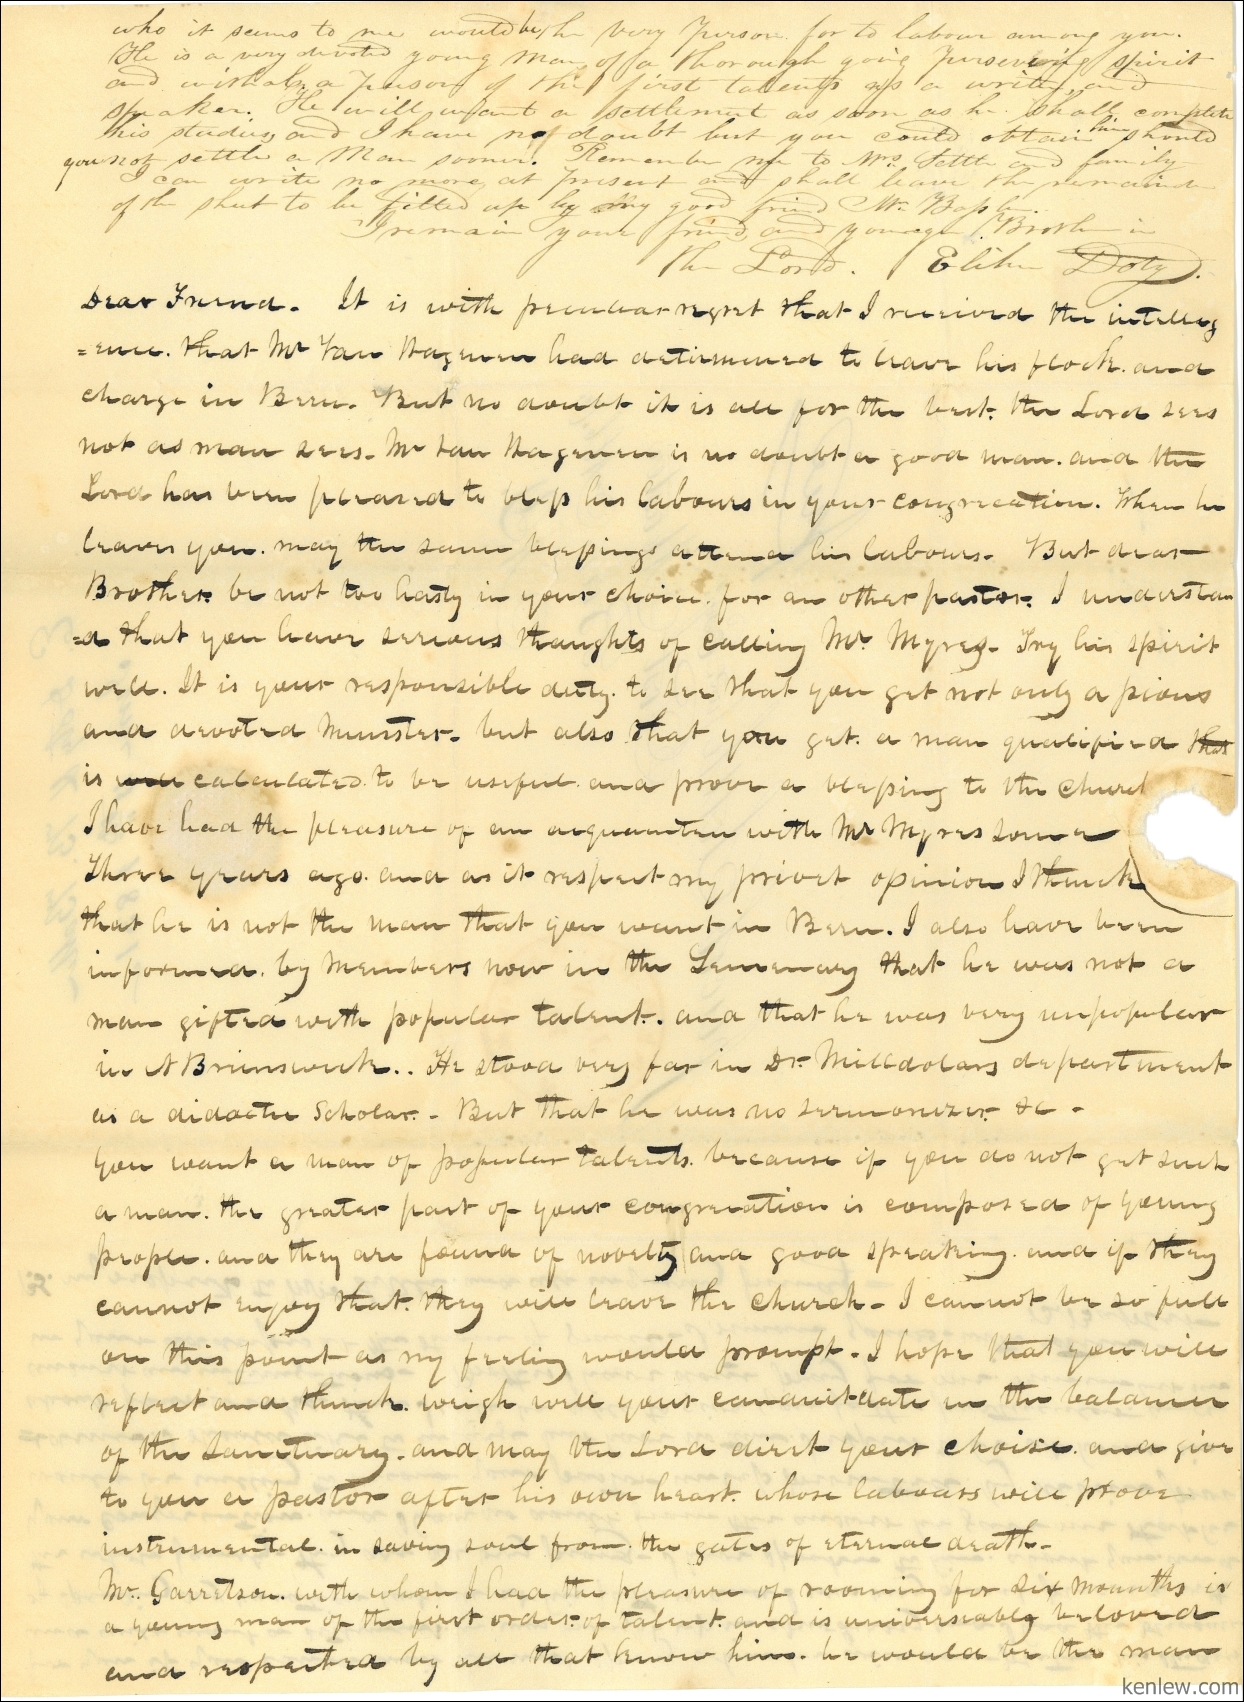 who it seems to me would be the very person for to labour among you.
He is a very devoted young man of a thorough going persevering spirit
and withal, a person of the first talents as a writer, and
speaker. He will want a settlement as soon as he shall complete
his studies, and I have no doubt but you could obtain him should
you not settle a Man sooner. Remember me to Mrs. and family
I can write no more at present and shall leave the remainder
of the sheet to be filled up by my good friend Mr.
I remain your friend and younger Brother in
the Lord. Elihu Doty.
Dear Friend. It is with peculiar regret that I received the intellig
=ence. that Mr Van Wagenen had determined to leave his flock. and
charge in Bern. But no doubt it is all for the best. the Lord sees
not as man sees. Mr Van Wagenen is no doubt a good man. and the
Lord has been pleased to bless his labours in your congreation. When he
leaves you. may the same blessings attend his labours. But dear
Brother. be not too hasty in your choice. for an other pastor. I understan
=d that you have serious thaughts of calling Mr. Myres. Try his spirit
well. It is your responsible duty. to see that you get not only a pious
and devoted Minister. but also that you get. a man qualified that
is well calculated. to be useful and prove a blessing to the Church
I have had the pleasure of an acquainten with Mr Myres some
Three years ago. and as it respect my privet opinion I think
that he is not the man that you want in Bern. I also have been
informed. by Members now in the Semenary that he was not a
man gifted with popular talent. and that he was very unpopular
in N Brunswick.. He stood very far in Dr. Milldolars department
as a didactic Scholar. - But that he was no sermonizer. &c -
You want a man of popular talents. because if you do not get such
a man. the greater part of your congreation is composed of young
people. and they are found of novelty and good speaking. and if they
cannot enjoy that. they will leave the church - I cannot be so full
on this point as my feeling would prompt. I hope that you will
reflect and think. weigh well your candidate in the balance
of the Sanctuary. and may the Lord dirct your choise. and give
to you a pastor after his own heart. whose labours will prove
instrumental. in saving soul from. the gates of eternal death. -
Mr. Garretson. with whom I had the pleasure of rooming for six mounths is
a young man of the first order. of talent. and is universeably beloved
and respected by all that know him. he would be the man
kenlew.com